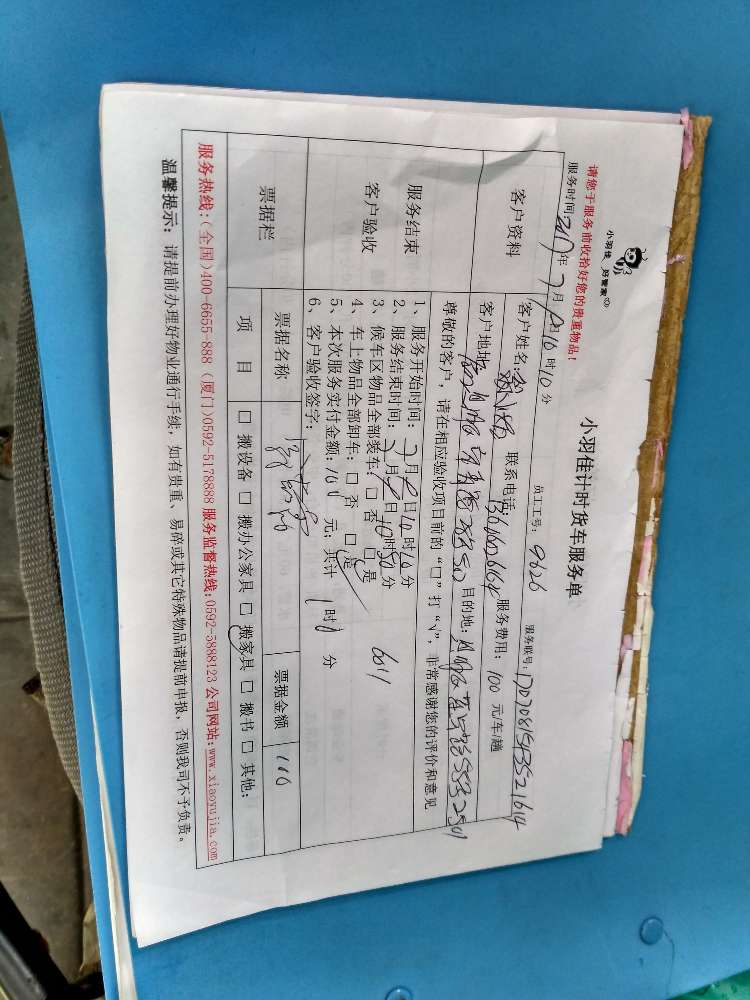 小羽佳 好管家
小羽佳计时货车服务单
请您于服务前收拾好您的贵重物品!
员工工号: 9626 服务联号: 1707081543521614
服务时间: 2017年7月 日10时10分
客户资料
客户姓名: 联系电话: 服务费用: 100 元/车/趟
客户地址: 目的地:
尊敬的客户, 请在相应验收项目前的“□”打“√”, 非常感谢您的评价和意见
服务结束
客户验收
1、服务开始时间: 7月 日10时10分
2、服务结束时间: 7月 日10时50分
3、候车区物品全部装车: □ 否 □ 是
4、车上物品全部卸车: □ 否 □ 是
5、本次服务实付金额: 100 元; 共计 1 时 分
6、客户验收签字:
票据栏
票据名称 票据金额 100
项 目 □ 搬设备 □ 搬办公家具 □ 搬家具 □ 搬书 □ 其他:
服务热线:(全国)400-6655-888 (厦门)0592-5178888 服务监督热线:0592-3888123 公司网站:www.xiaoyujia.com
温馨提示: 请提前办理好物业通行手续, 如有贵重、易碎或其它特殊物品请提前申报, 否则我司不予负责。